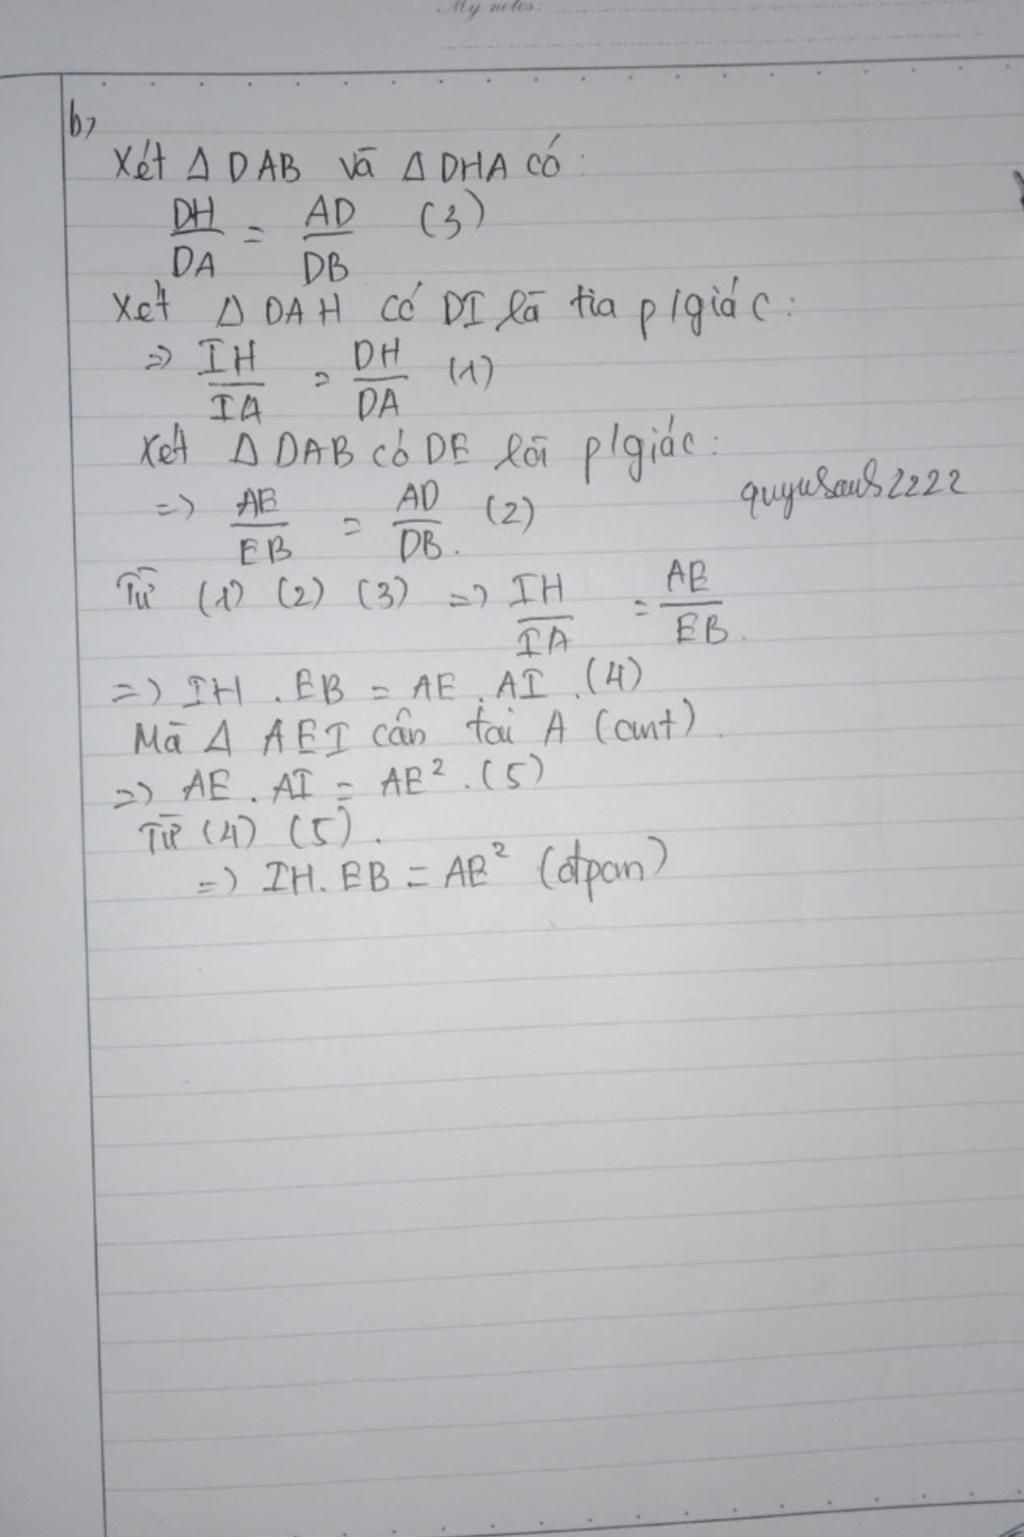 My notes:
b,
Xét Δ DAB và Δ DHA có:
DH/DA = AD/DB (3)
Xét Δ DAH có DI là tia p/giác:
=> IH/IA = DH/DA (1)
Xét Δ DAB có DE là p/giác:
=> AE/EB = AD/DB. (2)
quyusaus2222
Từ (1) (2) (3) => IH/IA = AE/EB.
=> IH . EB = AE . AI . (4)
Mà Δ AEI cân tại A (cmt).
=> AE . AI = AE² . (5)
Từ (4) (5).
=> IH . EB = AE² (đpcm)